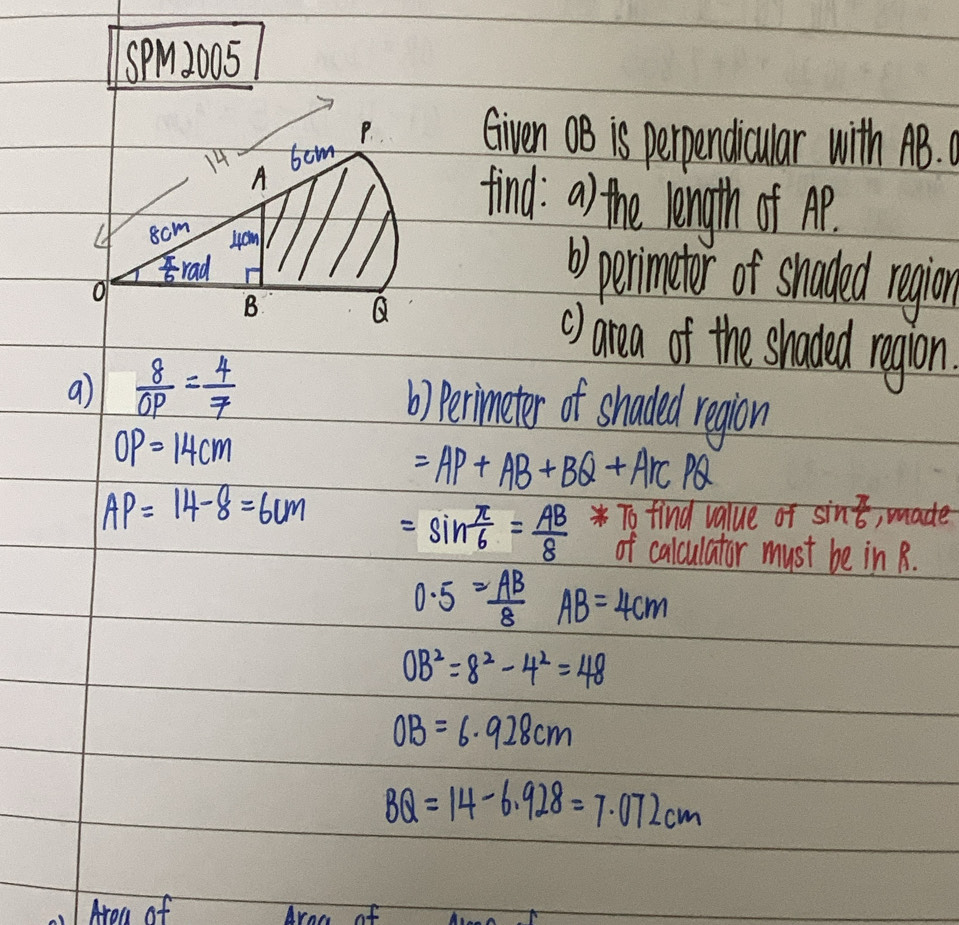 SPM 2005
14
6cm
P
A
8cm
4cm
π/6 rad
O
B
Q
Given OB is perpendicular with AB.
find: a) the length of AP.
b) perimeter of shaded region
c) area of the shaded region.
a) 8/OP = 4/7
OP = 14cm
AP = 14-8 = 6cm
b) Perimeter of shaded region
= AP + AB + BQ + Arc PQ
= sin π/6 = AB/8
* To find value of sin π/6, mode
of calculator must be in R.
0.5 = AB/8 AB = 4cm
OB² = 8² - 4² = 48
OB = 6.928cm
BQ = 14 - 6.928 = 7.072cm
Area of Area of